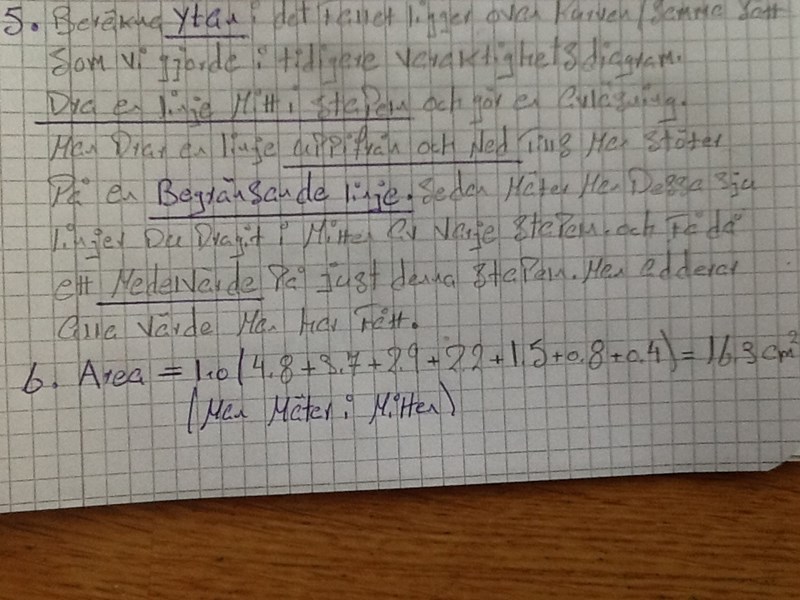 5. Beräkna Ytan i det Facket ligger ovan Kurven (Samma Sätt
Som vi gjorde i tidigere varaktighetsdiagram.
Dra en linje Mitt i stapeln och gör en avläsning.
Man Drar en linje uppifrån och Ned Tills Man Stöter
På en Begränsande linje. Sedan Mäter Man Dessa sju
linjer Du Dragit i Mitten av Varje Stapeln. och Få då
ett Medelvärde På just denna Stapeln. Man adderar
Alla Värde Man har Fått.
6. Area = 1.0 (4.8+3.7+2.9+2.2+1.5+0.8+0.4) = 16.3 cm²
(Man Mäter i Mitten)